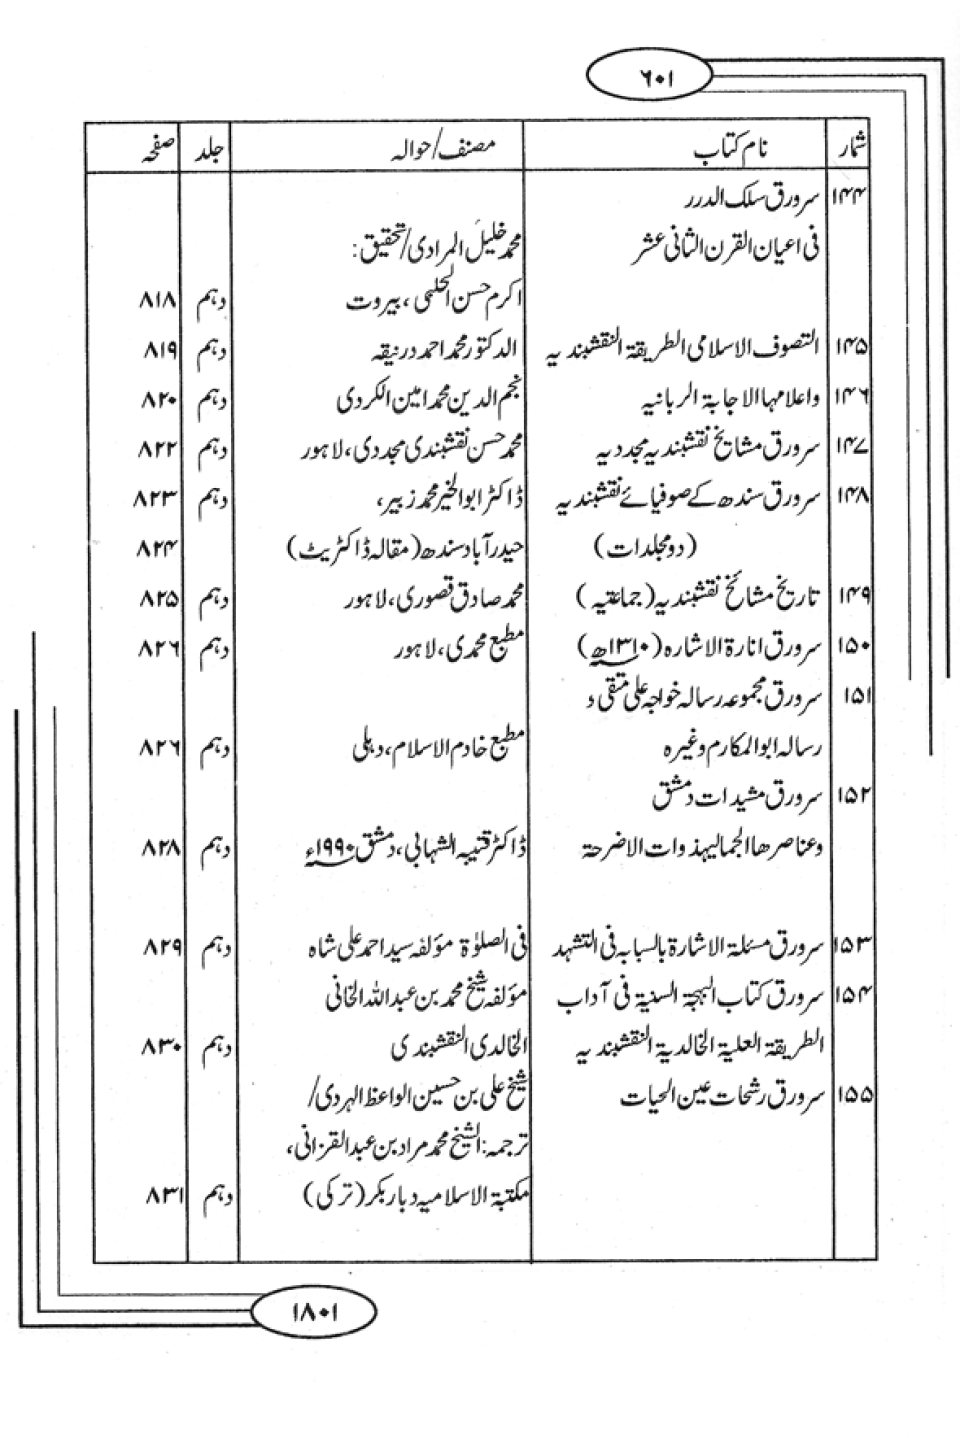 ۶۰۱
شمار نام کتاب مصنف/حوالہ جلد صفحہ
۱۴۴ سرورق سلک الدرر
فی اعیان القرن الثانی عشر محمد خلیل المرادی/تحقیق:
اکرم حسن الحلمی، بیروت دہم ۸۱۸
۱۴۵ التصوف الاسلامی الطریقۃ النقشبندیہ الدکتور محمد احمد درنیقہ دہم ۸۱۹
۱۴۶ واعلامہا الاجابۃ الربانیہ نجم الدین محمد امین الکردی دہم ۸۲۰
۱۴۷ سرورق مشایخ نقشبندیہ مجددیہ محمد حسن نقشبندی مجددی، لاہور دہم ۸۲۲
۱۴۸ سرورق سندھ کے صوفیائے نقشبندیہ ڈاکٹر ابوالخیر محمد زبیر، دہم ۸۲۳
(دو مجلدات) حیدرآباد سندھ (مقالہ ڈاکٹریٹ) ۸۲۴
۱۴۹ تاریخ مشائخ نقشبندیہ (جماعتیہ) محمد صادق قصوری، لاہور دہم ۸۲۵
۱۵۰ سرورق انارۃ الاشارہ (۱۳۱۰ھ) مطبع محمدی، لاہور دہم ۸۲۶
۱۵۱ سرورق مجموعہ رسالہ خواجہ علی متقی و
رسالہ ابوالمکارم وغیرہ مطبع خادم الاسلام، دہلی دہم ۸۲۶
۱۵۲ سرورق مشیدات دمشق
وعناصرھا الجمالیہذوات الاضرحۃ ڈاکٹر قتیبہ الشہابی، دمشق ۱۹۹۰ء دہم ۸۲۸
۱۵۳ سرورق مسئلۃ الاشارۃ بالسبابہ فی التشہد فی الصلوٰۃ مؤلفہ سید احمد علی شاہ دہم ۸۲۹
۱۵۴ سرورق کتاب البہجۃ السنیۃ فی آداب مؤلفہ شیخ محمد بن عبداللہ الخانی
الطریقۃ العلیۃ الخالدیۃ النقشبندیہ الخالدی النقشبندی دہم ۸۳۰
۱۵۵ سرورق رشحات عین الحیات شیخ علی بن حسین الواعظ الہردی/
ترجمہ: الشیخ محمد مراد بن عبدالقزانی،
مکتبۃ الاسلامیہ دباربکر (ترکی) دہم ۸۳۱
۱۸۰۱